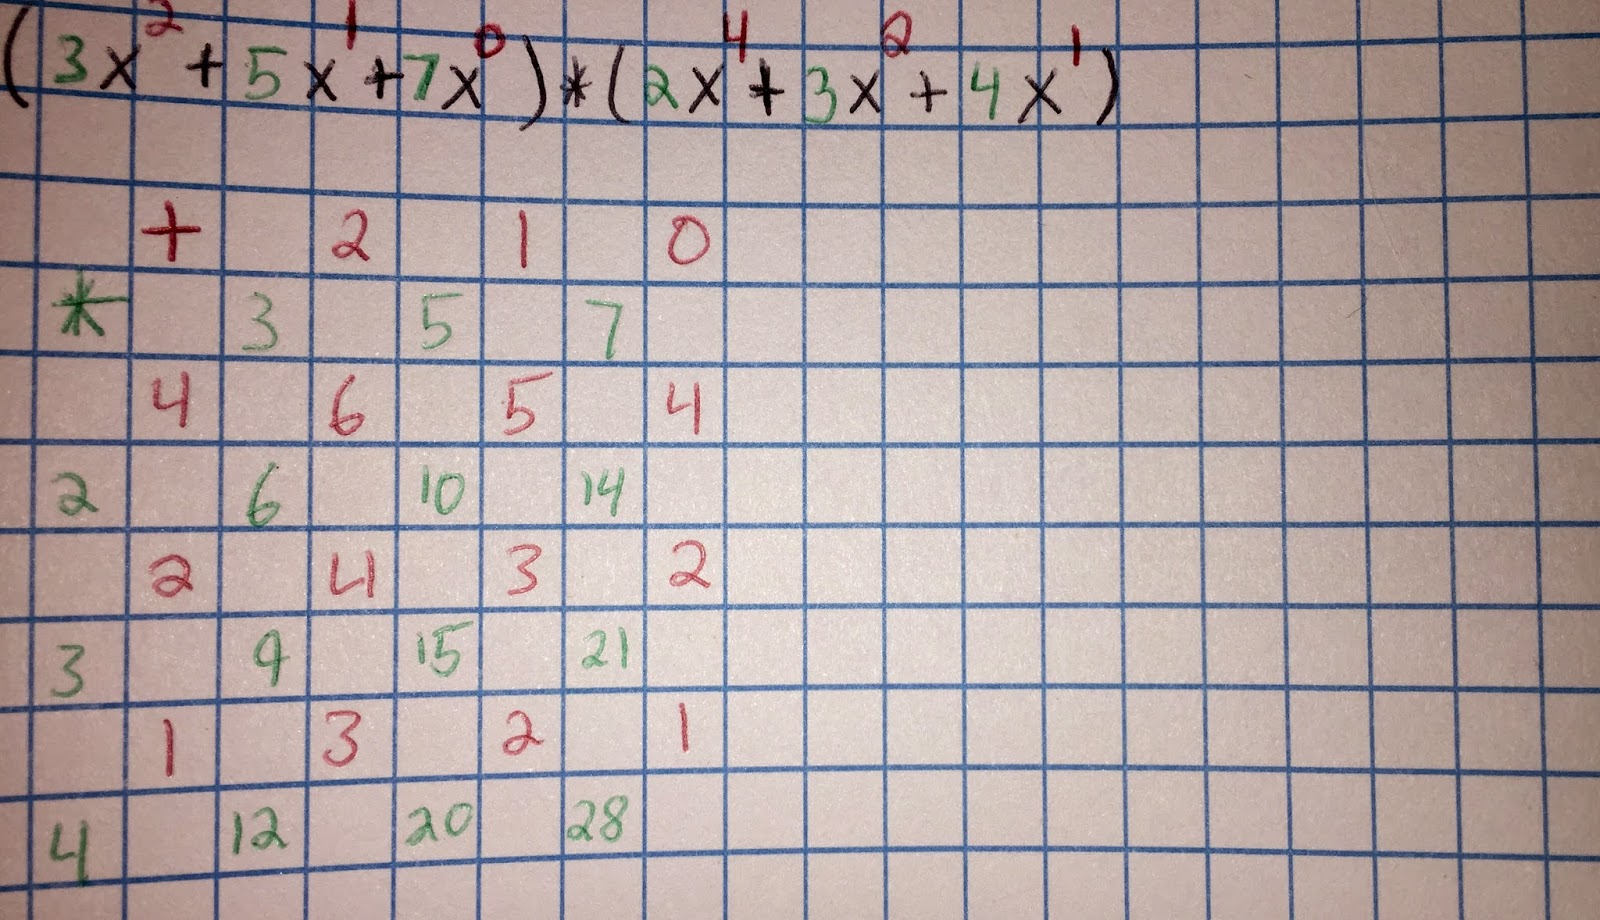 (3x² + 5x¹ + 7x⁰) * (2x⁴ + 3x² + 4x¹)
+ 2 1 0
* 3 5 7
4 6 5 4
2 6 10 14
2 4 3 2
3 9 15 21
1 3 2 1
4 12 20 28